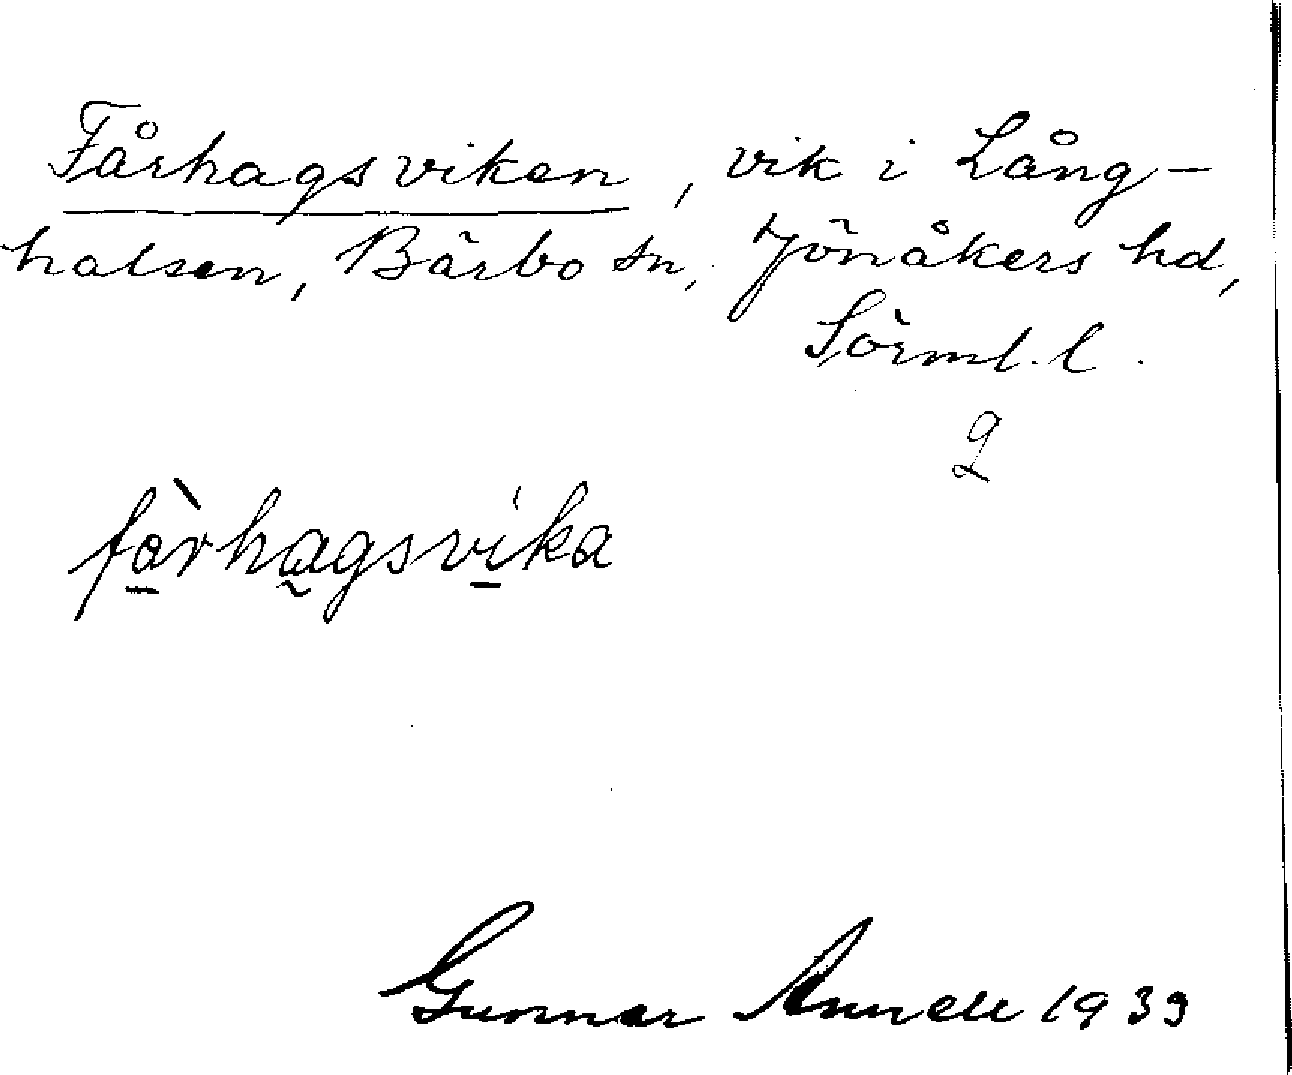 Fårhagsviken, vik i Lång-
halsen, Bärbo sn, Jönåkers hd,
Sörml. l.
2
fàrhagsvíka
Gunnar 1939